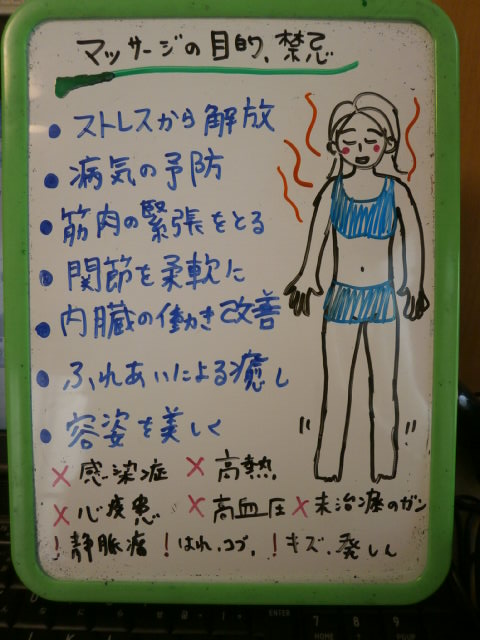 マッサージの目的、禁忌
• ストレスから解放
• 病気の予防
• 筋肉の緊張をとる
• 関節を柔軟に
• 内臓の働き改善
• ふれあいによる癒し
• 容姿を美しく
× 感染症 × 高熱
× 心疾患 × 高血圧 × 未治療のガン
! 静脈瘤 ! はれ、コブ、 ! キズ、発しん
ENTER 7 8 9
HOME